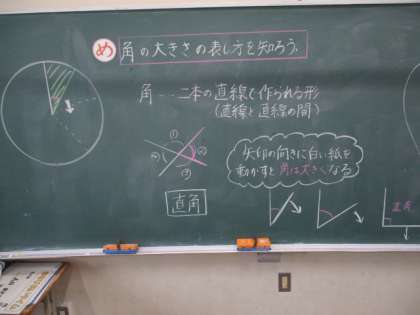 め 角の大きさの表し方を知ろう。
角…二本の直線で作られる形
(直線と直線の間)
①
②
③
④
矢印の向きに白い紙を
動かすと角は大きくなる
直角
直角